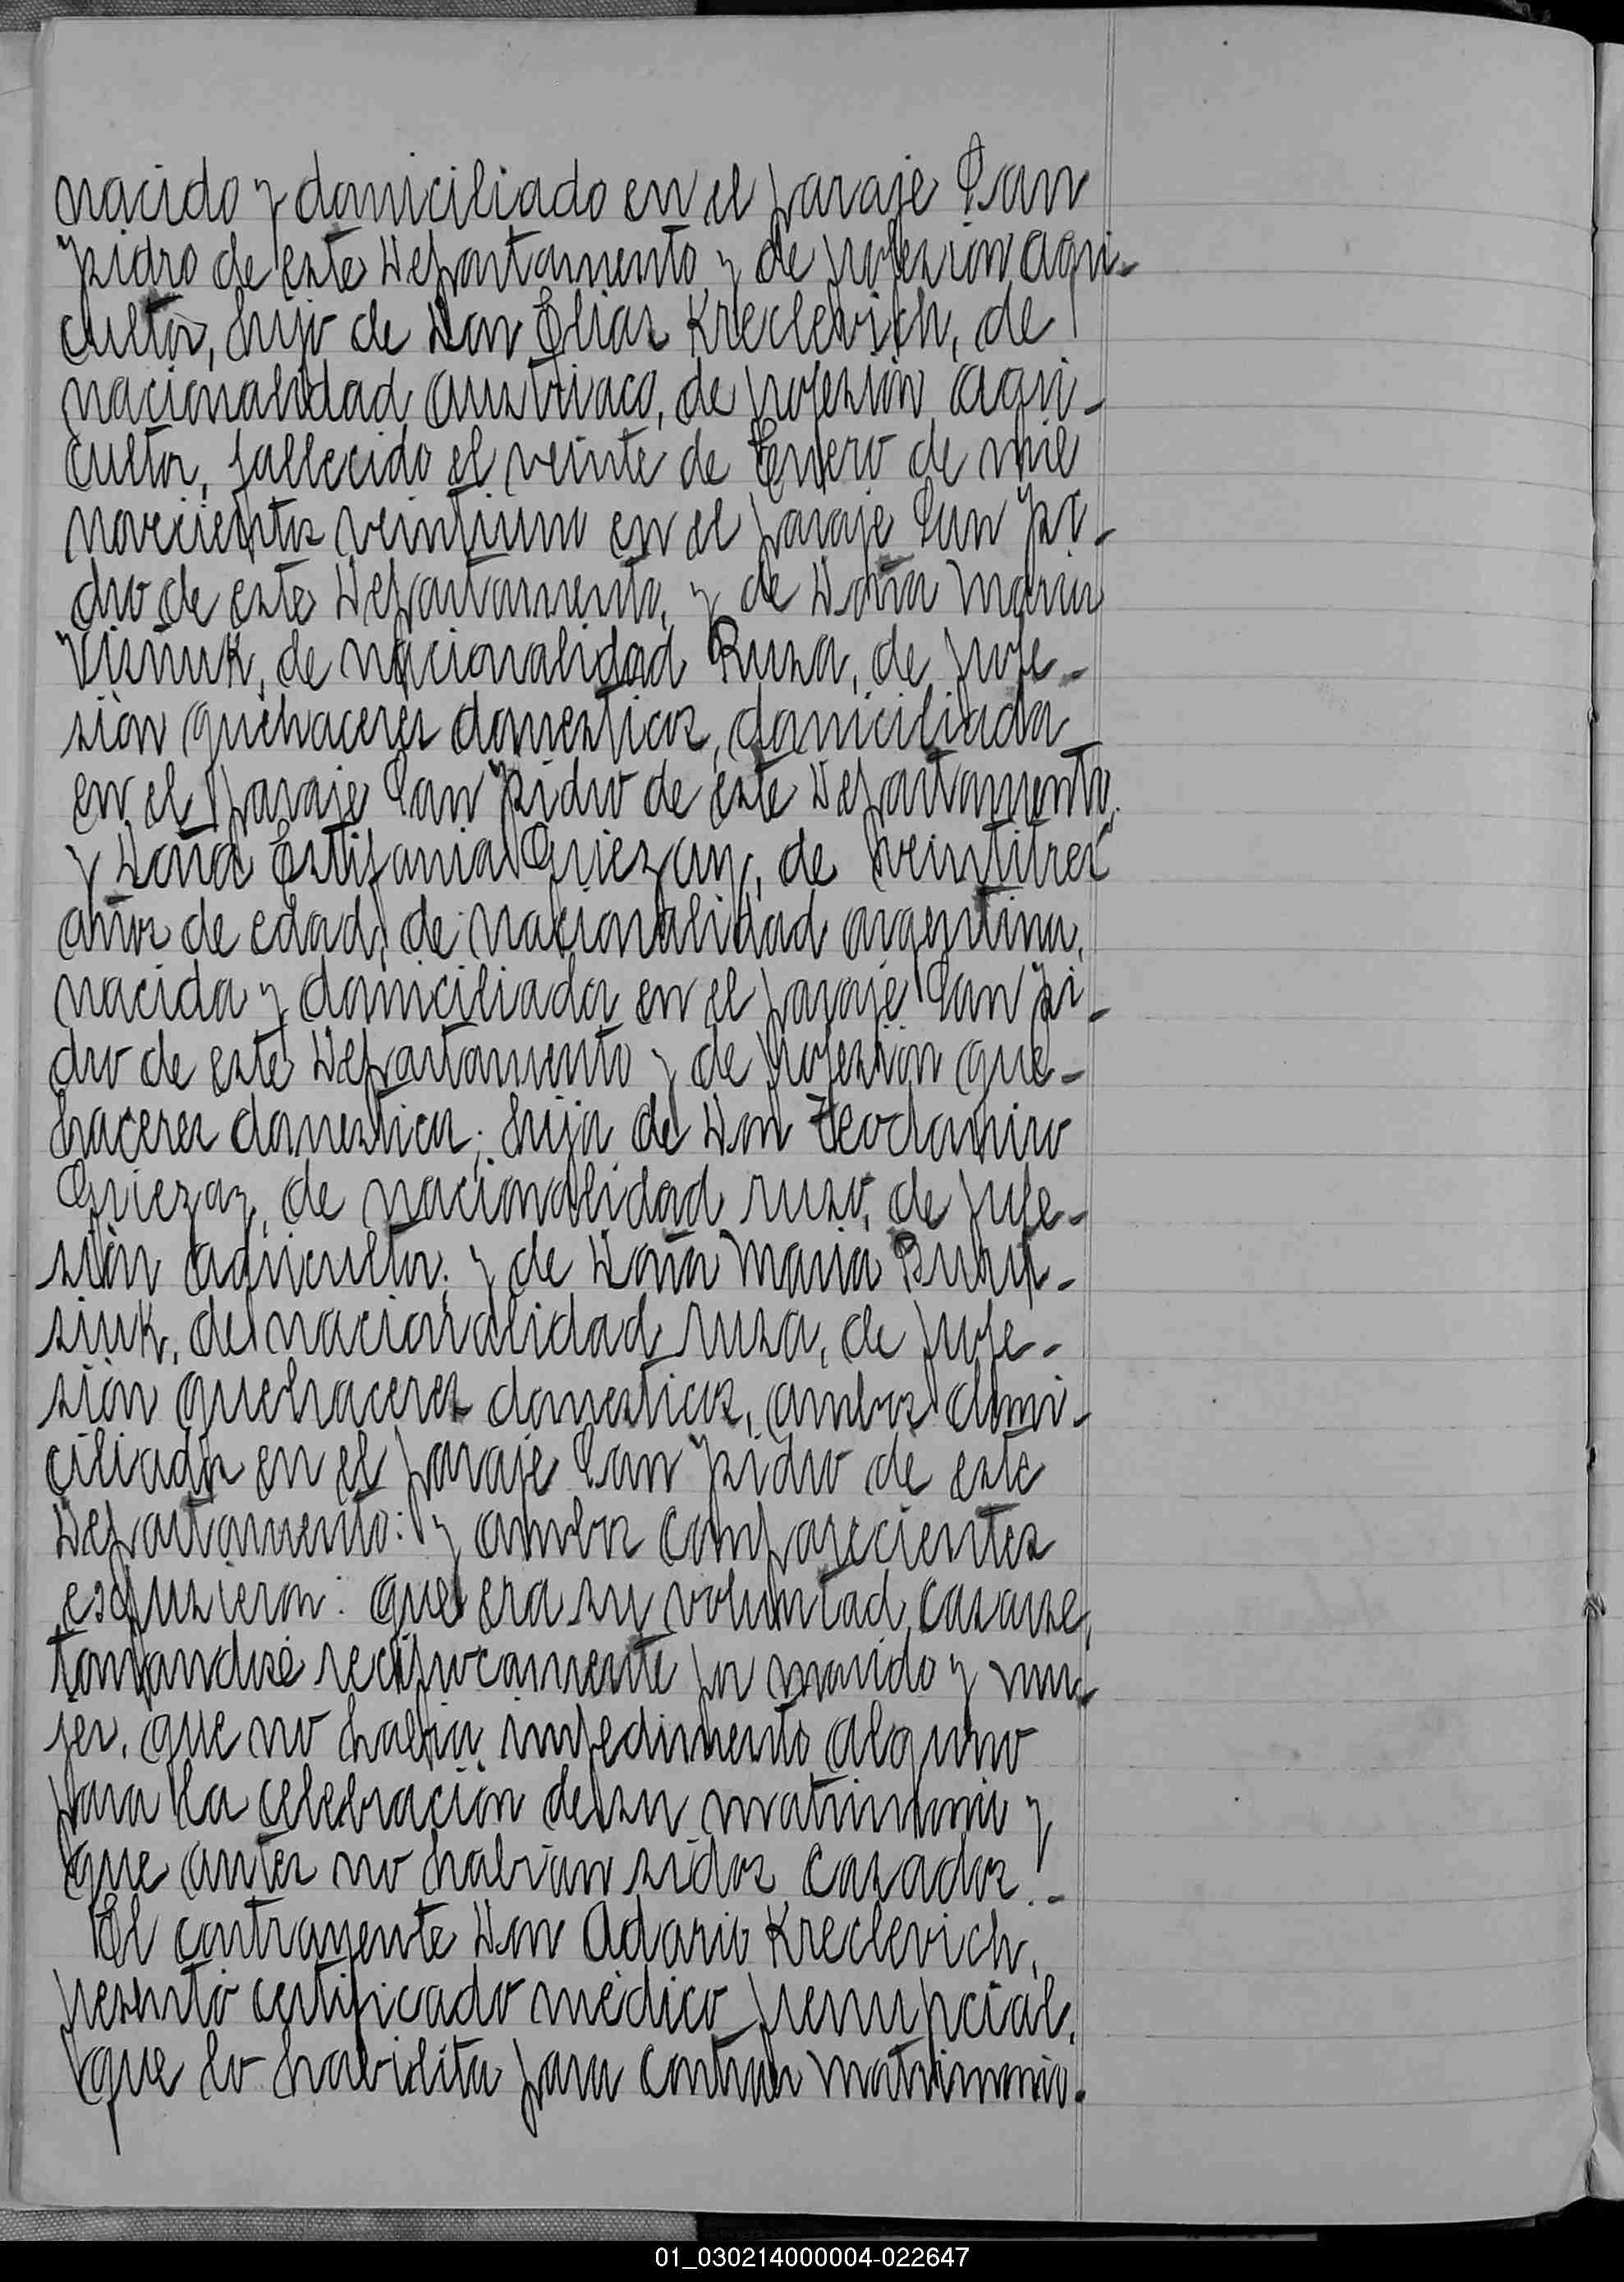 nacido y domiciliado en el paraje San
Ysidro de este Departamento y de profesión agri-
cultor, hijo de Don Elias Kreclevich, de
nacionalidad austriaco, de profesión agri-
cultor, fallecido el veinte de Enero de mil
novecientos veintiuno en el paraje San Ysi-
dro de este Departamento, y de Doña Maria
Visñuk, de nacionalidad Rusa, de profe-
sión quehaceres domesticos, domiciliada
en el paraje San Ysidro de este Departamento,
y Doña Estifania Griezay, de veintitres
años de edad, de nacionalidad argentina,
nacida y domiciliada en el paraje San Ysi-
dro de este Departamento y de profesión que-
haceres domesticos; hija de Don Teodomiro
Griezay, de nacionalidad ruso, de profe-
sión agricultor; y de Doña Maria
siuk, de nacionalidad rusa, de profe-
sión quehaceres domesticos, ambos domi-
ciliados en el paraje San Ysidro de este
Departamento: y ambos comparecientes
espusieron: que era su voluntad casarse,
tomandose reciprocamente por marido y mu-
jer, que no habia impedimento alguno
para la celebración de su matrimonio y
que antes no habian sidos casados.-
El contrayente Don Adario Kreclevich,
presentó certificado médico prenupcial,
que lo habilita para contraer matrimonio.
01_030214000004-022647